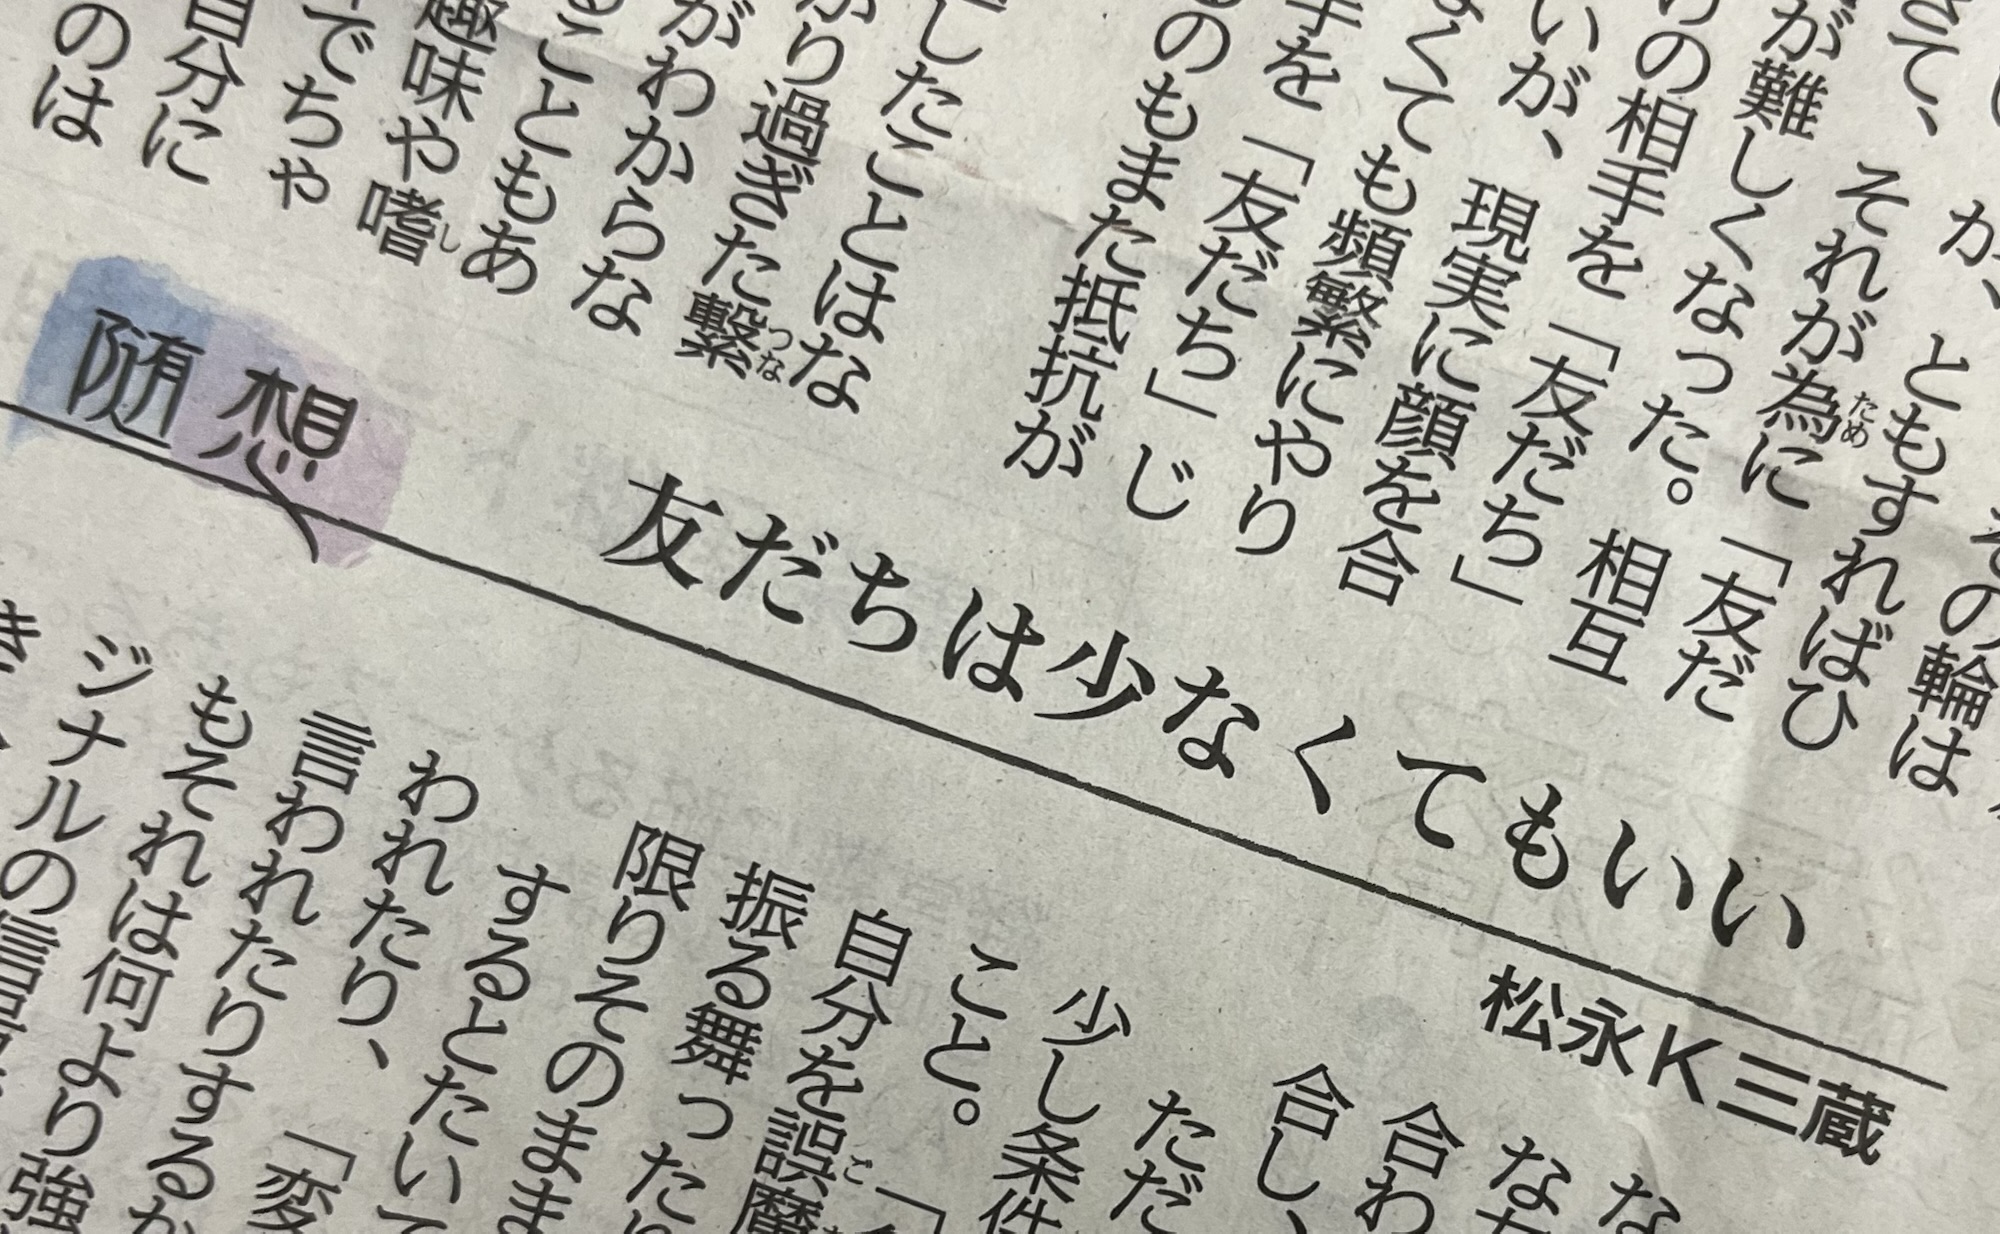 その輪は
か、ともすればひ
きて、それが為に
ため
が難しくなった。「友だ
りの相手を「友だち」
いが、現実に顔を合
なくても頻繁にやり
手を「友だち」じ
るのもまた抵抗が
したことはな
かり過ぎた繋
つな
がわからな
こともあ
趣味や嗜
し
でちゃ
自分に
のは
随想
友だちは少なくてもいい
松永K三蔵
合わ
合し、
ただ
少し条件
こと。
自分を誤魔
ご
振る舞った
限りそのまま
するとたいて
われたり、「変
言われたりするか
もそれは何より強
ジナルの信
相互